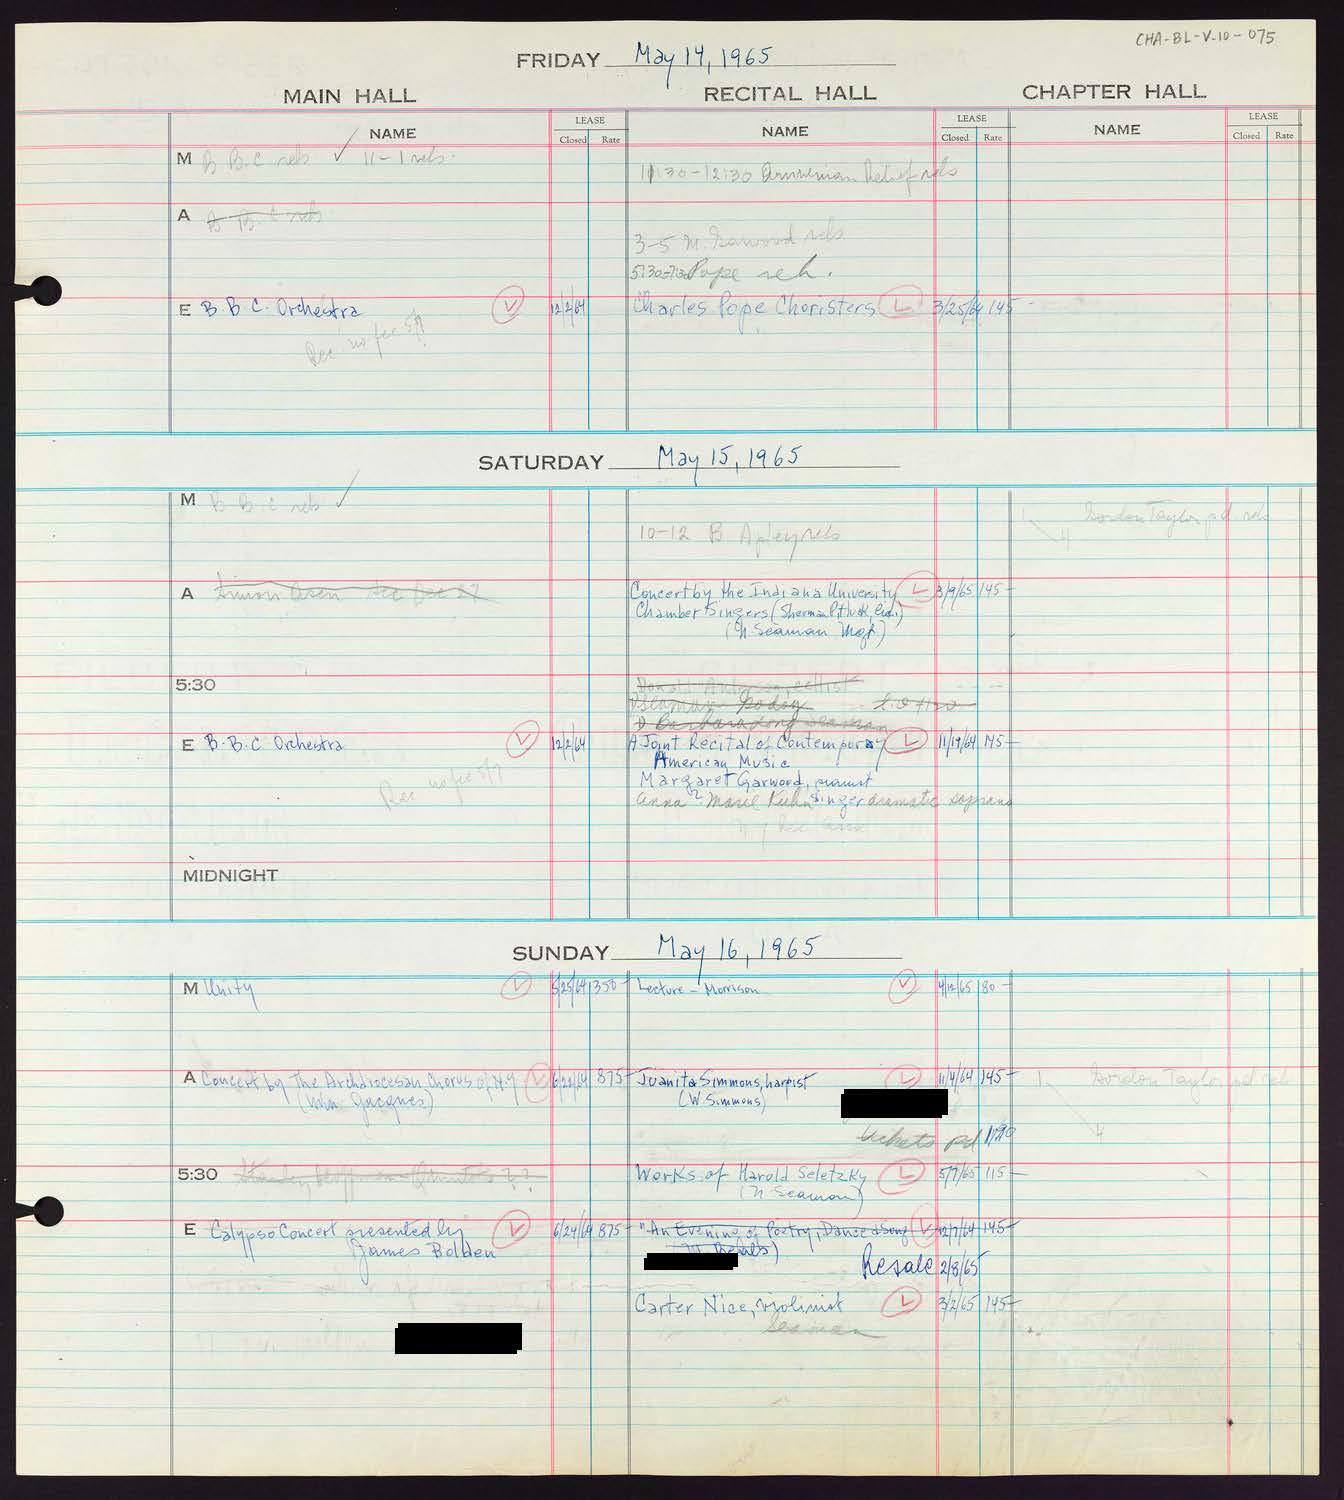 CHA-BL-V.10-075
FRIDAY May 14, 1965
MAIN HALL RECITAL HALL CHAPTER HALL
NAME LEASE Closed Rate NAME LEASE Closed Rate NAME LEASE Closed Rate
M B B.C rehs ✓ 11-1 rehs.
10:30-12:30 Armenian Relief rehs
A B B.C rehs
3-5 M. Garwood rehs
5:30-7:30 Pope reh.
E B B C. Orchestra 12/2/64 Charles Pope Choristers 3/25/64 145-
Rec no fee 5/7
SATURDAY May 15, 1965
M B B C rehs ✓
1 Gordon Taylor pd. rehs
4
10-12 B Apley rehs
A Simon
Concert by the Indiana University 3/9/65 145-
Chamber Singers (Sherman
(N. Seaman Mgt)
5:30 Donald cellist
Seaman
Barbara Seaman
E B.B.C Orchestra 12/2/64 A Joint Recital of Contemporary 11/19/64 145-
American Music
Rec no fee 5/7
Margaret Garwood, pianist
Anna Marie Kuhn singer dramatic soprano
MIDNIGHT
SUNDAY May 16, 1965
M Unity 5/25/64 350- Lecture - Morrison 4/12/65 80-
A Concert by The Archdiocesan Chorus of N.Y 6/22/64 875- Juanita Simmons, harpist 11/4/64 145- 1 Gordon Taylor pd rehs
(John Jacques) (W. Simmons)
4
tickets pd 11/20
5:30 Stanley
Works of Harold Seletzky 5/7/65 115-
(N Seaman)
E Calypso Concert presented by 6/24/64 875- "An Evening of Poetry, Dance & Song 12/7/64 145-
James Bolden
Resale 2/8/65
Carter Nice, violinist 3/2/65 145-
Seaman